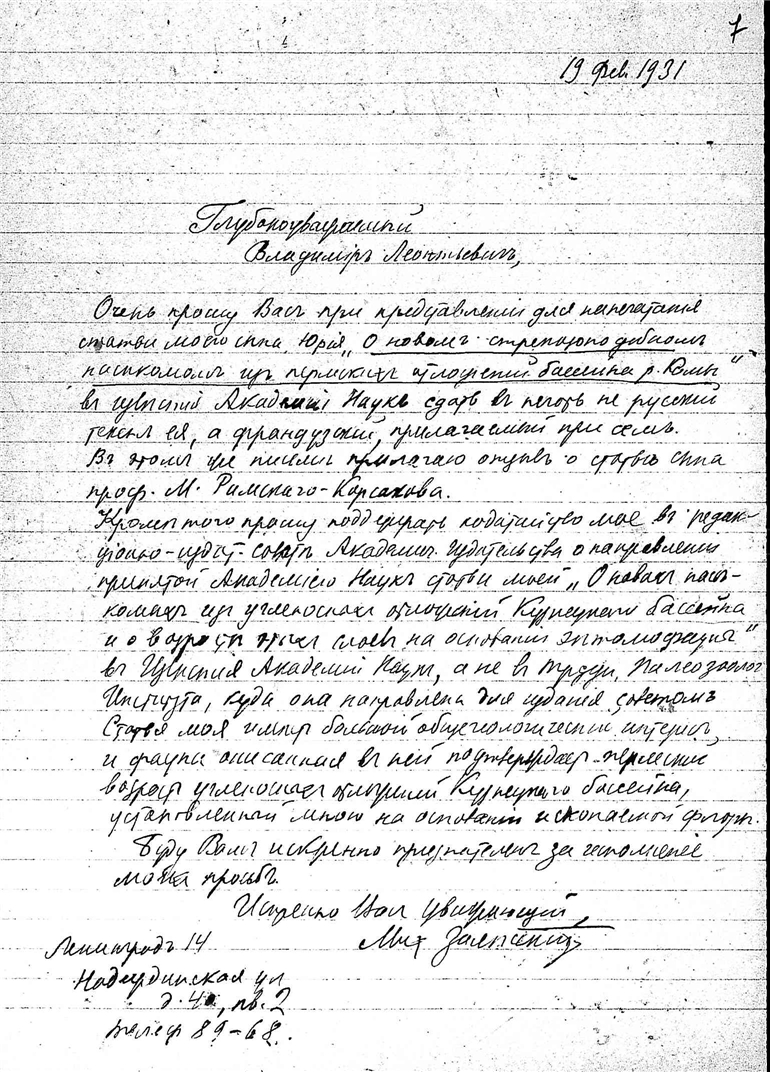 7
19 Фев. 1931
Глубокоуважаемый
Владиміръ Леонтьевичъ,
Очень прошу Васъ при представленіи для напечатанія
статьи моего сына, Юрія „О новомъ стрепсероподобномъ
насѣкомомъ изъ пермскихъ отложеній бассейна р. Камы"
въ Извѣстія Академіи Наукъ сдать въ печать не русскій
текстъ ея, а французскій, прилагаемый при семъ.
Въ этомъ же письмѣ прилагаю отзывъ о статьѣ сына
проф. М. Римскаго-Корсакова.
Кромѣ того прошу поддержать ходатайство мое въ редак-
ціонно-издат. совѣтъ Академич. Издательства о направленіи
принятой Академіею Наукъ статьи моей „О новыхъ насѣ-
комыхъ изъ угленосныхъ отложеній Кузнецкаго бассейна
и о возрастѣ этихъ слоевъ на основаніи энтомофауны"
въ Извѣстія Академіи Наукъ, а не въ Труды Палеозоолог.
Института, куда она направлена для изданія совѣтомъ
Статья моя имѣетъ большой общегеологическій интересъ,
и фауна описанная въ ней подтверждаетъ пермскій
возрастъ угленосныхъ отложеній Кузнецкаго бассейна,
установленный мною на основаніи ископаемой флоры.
Буду Вамъ искренно признателенъ за исполненіе
моей просьбы.
Искренно Васъ уважающій,
Мих Залѣсскій
Ленинградъ 14
Надеждинская ул
д. 4, кв. 2
Телеф 89-68.